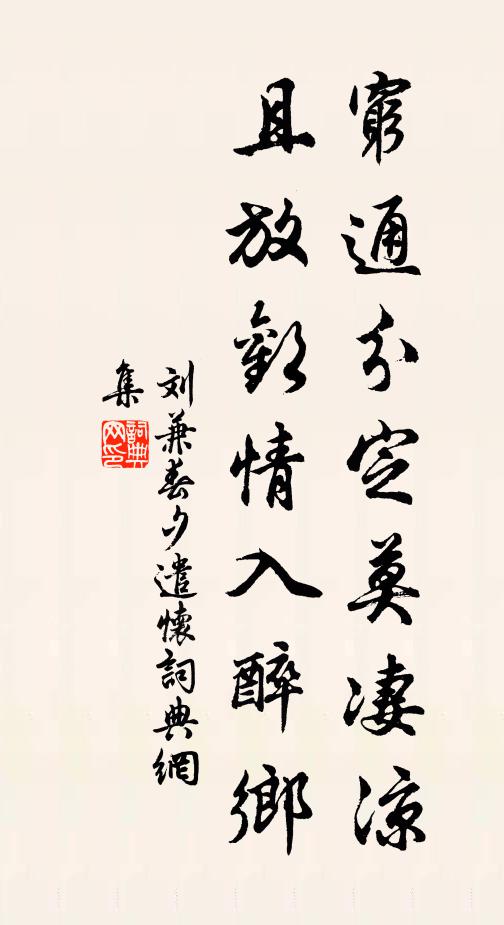 窮通分定莫淒涼
且放歡情入醉鄉
刘兼春夕遣懷詞典網
集
詞典网印